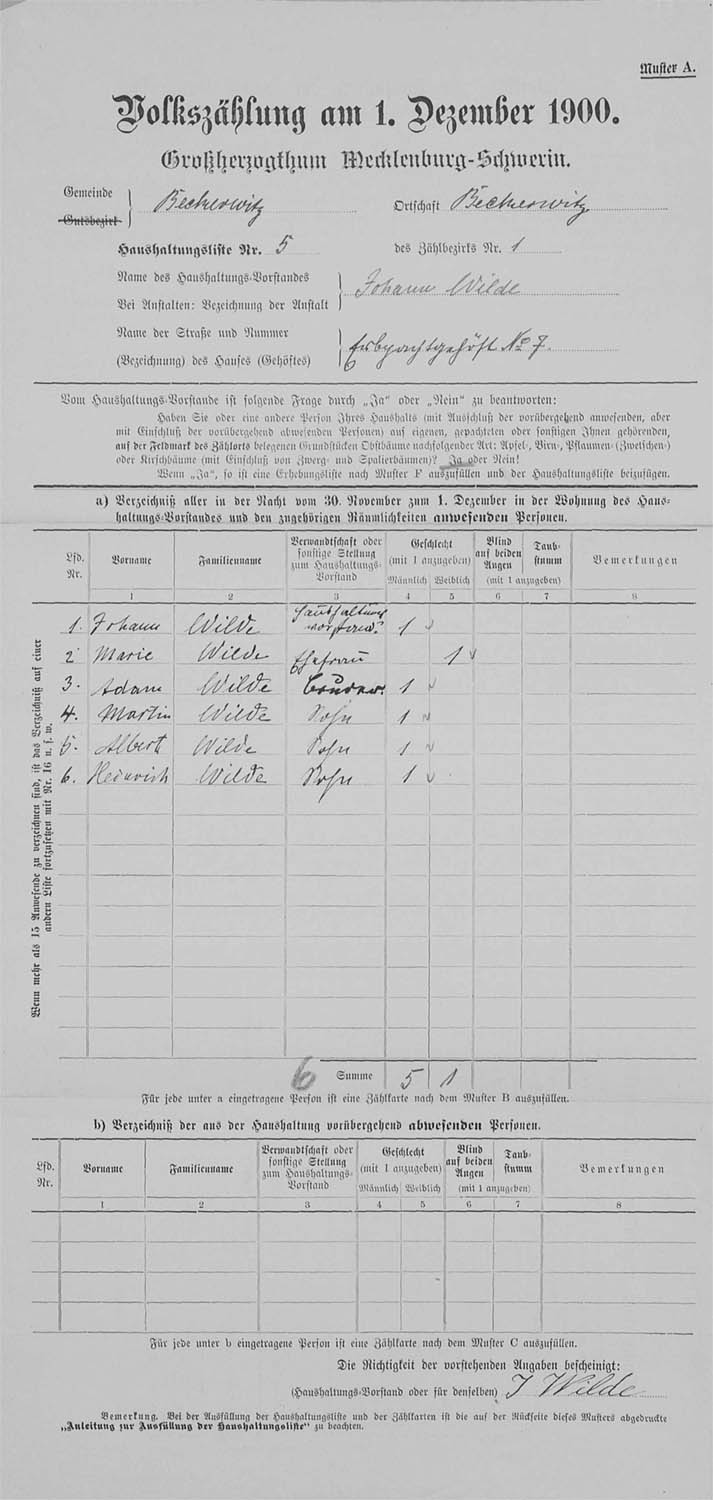 Muster A.
Volkszählung am 1. Dezember 1900.
Großherzogthum Mecklenburg-Schwerin.
Gemeinde
Gutsbezirk
Beckerwitz
Ortschaft Beckerwitz
Haushaltungsliste Nr. 5
des Zählbezirks Nr. 1
Name des Haushaltungs-Vorstandes
Bei Anstalten: Bezeichnung der Anstalt
Johann Wilde
Name der Straße und Nummer
(Bezeichnung) des Hauses (Gehöftes)
Erbpachtgehöft No 7.
Vom Haushaltungs-Vorstande ist folgende Frage durch „Ja“ oder „Nein“ zu beantworten:
Haben Sie oder eine andere Person Ihres Haushalts (mit Ausschluß der vorübergehend anwesenden, aber
mit Einschluß der vorübergehend abwesenden Personen) auf eigenen, gepachteten oder sonstigen Ihnen gehörenden,
auf der Feldmark des Zählorts belegenen Grundstücken Obstbäume nachfolgender Art: Apfel-, Birn-, Pflaumen-(Zwetschen-)
oder Kirschbäume (mit Einschluß von Zwerg- und Spalierbäumen)? Ja oder Nein!
Wenn „Ja“, so ist eine Erhebungsliste nach Muster F auszufüllen und der Haushaltungsliste beizufügen.
a) Verzeichniß aller in der Nacht vom 30. November zum 1. Dezember in der Wohnung des Haus-
haltungs-Vorstandes und den zugehörigen Räumlichkeiten anwesenden Personen.
Lfd. Nr. Vorname Familienname Verwandtschaft oder sonstige Stellung zum Haushaltungs-Vorstand Geschlecht (mit 1 anzugeben) Männlich Weiblich Blind auf beiden Augen Taub-stumm (mit 1 anzugeben) Bemerkungen
1 2 3 4 5 6 7 8
1. Johann Wilde Haushaltungsvorstand. 1
2 Marie Wilde Ehefrau 1
3. Adam Wilde Bruder. 1
4. Martin Wilde Sohn 1
5. Albert Wilde Sohn 1
6. Heinrich Wilde Sohn 1
Wenn mehr als 15 Anwesende zu verzeichnen sind, ist das Verzeichniß auf einer
andern Liste fortzusetzen mit Nr. 16 u. s. w.
6 Summe 5 1
Für jede unter a eingetragene Person ist eine Zählkarte nach dem Muster B auszufüllen.
b) Verzeichniß der aus der Haushaltung vorübergehend abwesenden Personen.
Lfd. Nr. Vorname Familienname Verwandtschaft oder sonstige Stellung zum Haushaltungs-Vorstand Geschlecht (mit 1 anzugeben) Männlich Weiblich Blind auf beiden Augen Taub-stumm (mit 1 anzugeben) Bemerkungen
1 2 3 4 5 6 7 8
Für jede unter b eingetragene Person ist eine Zählkarte nach dem Muster C auszufüllen.
Die Richtigkeit der vorstehenden Angaben bescheinigt:
(Haushaltungs-Vorstand oder für denselben) J Wilde
Bemerkung. Bei der Ausfüllung der Haushaltungsliste und der Zählkarten ist die auf der Rückseite dieses Musters abgedruckte
„Anleitung zur Ausfüllung der Haushaltungsliste“ zu beachten.